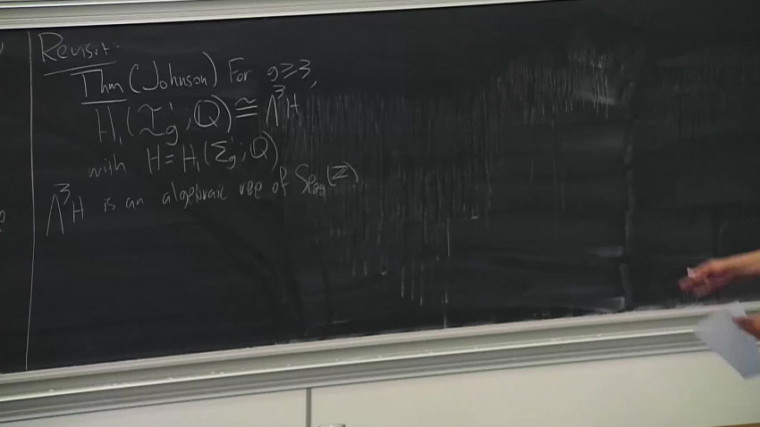 Revisit:
Thm (Johnson) For g≥3,
H₁(I_g^1; Q) ≅ Λ³H
with H = H₁(Σ_g^1; Q)
Λ³H is an algebraic rep of Sp_2g(Z)